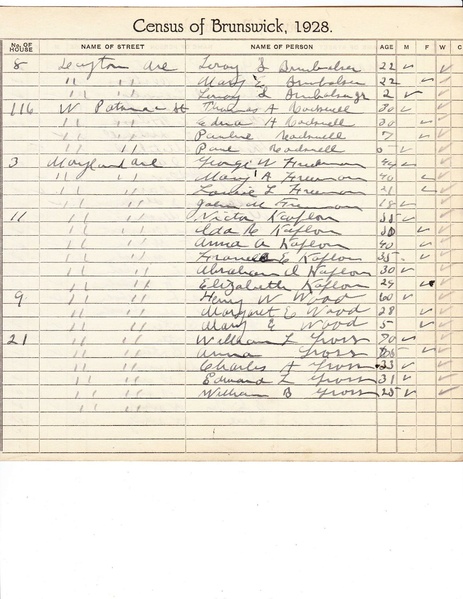 Census of Brunswick, 1928.
No. OF HOUSE NAME OF STREET NAME OF PERSON AGE M F W C
8 Ave Leroy S 22
" " Mary E 22
" " Leroy S 2
116 W Potomac St Thomas A Rockwell 30
" " Edna H Rockwell 30
" " Pauline Rockwell 7
" " Rockwell
3 Maryland Ave George W Freeman 44
" " Mary A Freeman 40
" " L Freeman 21
" " John M Freeman 18
11 " " Victor Kaplon 35
" " Ida R Kaplon
" " Anna A Kaplon 40
" " E Kaplon 35
" " Abraham I Kaplon 30
" " Elizabeth Kaplon 29
9 " " Henry W Wood 60
" " Margaret E Wood 28
" " Mary E Wood 5
21 " " William L Gross 70
" " Anna Gross
" " Charles A Gross 33
" " Edward L Gross 31
" " William B Gross 25